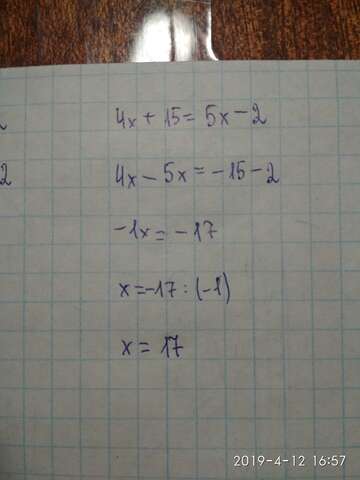 4x + 15 = 5x - 2
2
4x - 5x = -15 - 2
-1x = -17
x = -17 : (-1)
x = 17
2019-4-12 16:57